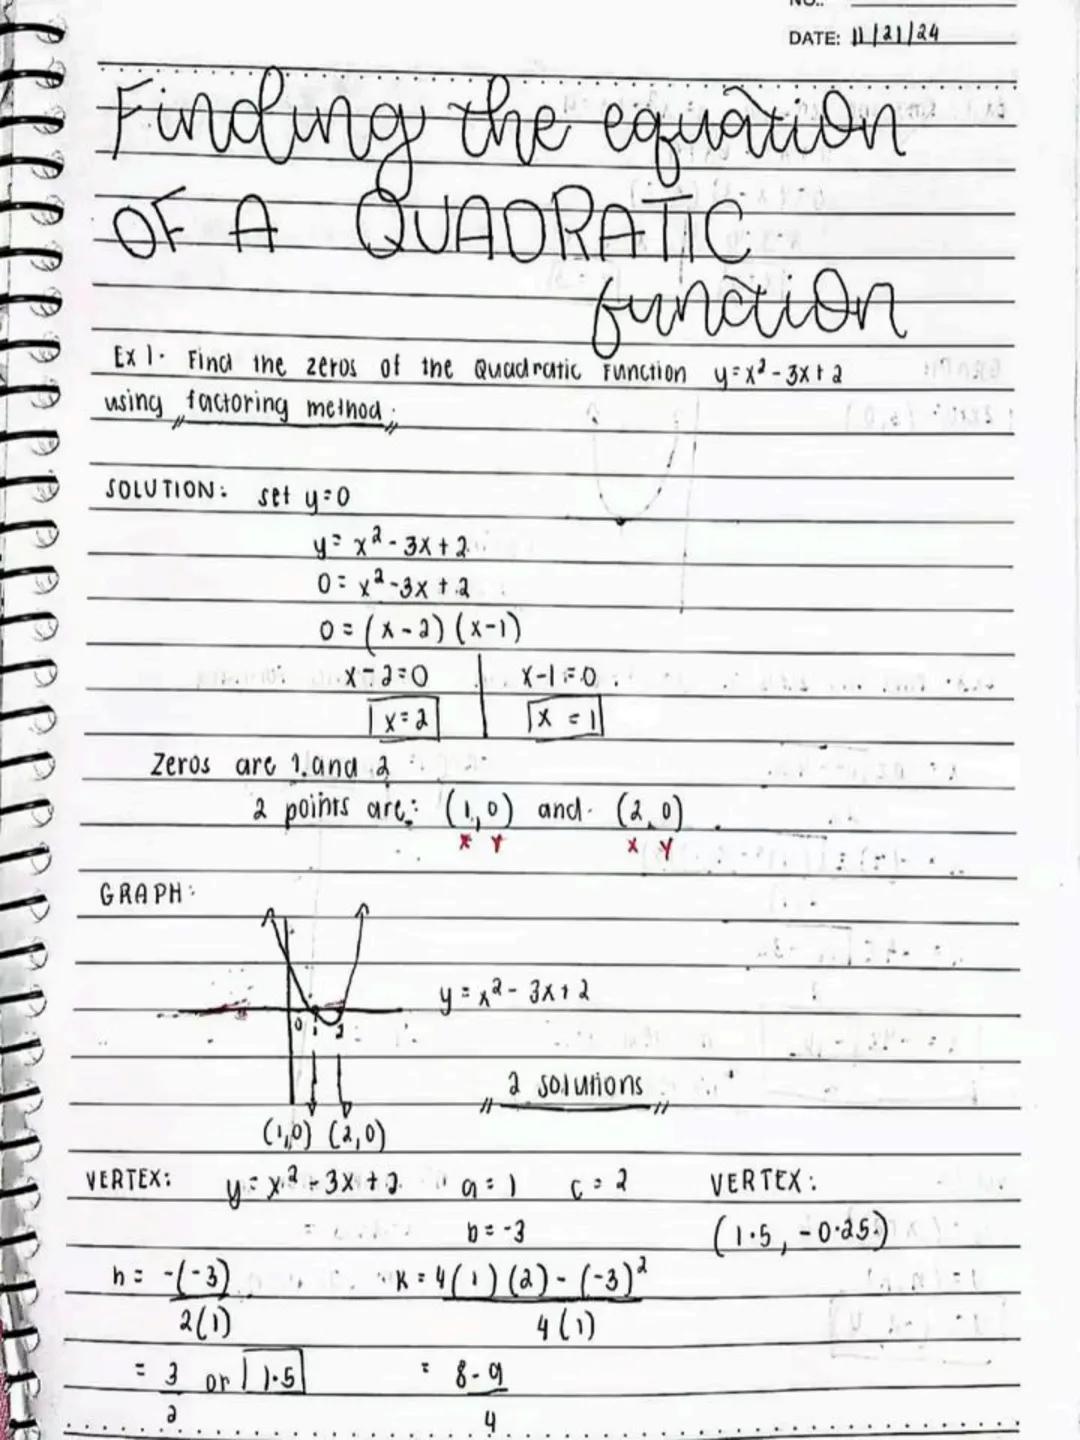 NO.:
DATE: 11/21/24
Finding the equation
OF A QUADRATIC
function
Ex 1. Find the zeros of the Quadratic Function y=x²-3x+2
using factoring method.
SOLUTION: set y=0
y= x²-3x+2
0= x²-3x+2
0=(x-2)(x-1)
x-2=0 | x-1=0
x=2 | x=1
Zeros are 1 and 2
2 points are: (1,0) and (2,0)
x y x y
GRAPH:
y=x²-3x+2
0 1 2
2 solutions
(1,0) (2,0)
VERTEX: y=x²-3x+2 a=1 c=2 VERTEX:
b=-3 (1.5, -0.25)
h= -(-3) K= 4(1)(2)-(-3)²
2(1) 4(1)
= 3 or 1.5 = 8-9
2 4